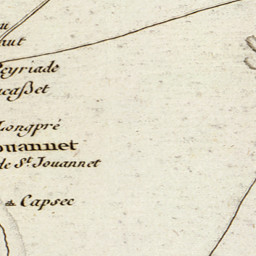 u
aut
eyriade
caßet
Longpré
ouannet
de St. Jouannet
Capsec